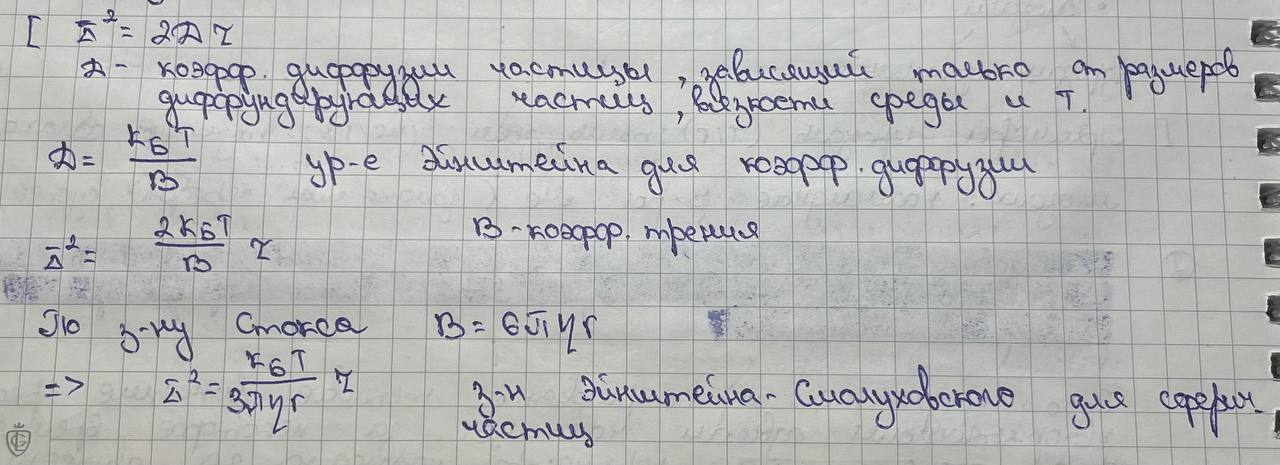 [ Δ̄² = 2Dτ
D - коэфф. диффузии частицы, зависящий только от размеров
диффундирующих частиц, вязкости среды и T.
D = k_Б T / B ур-е Эйнштейна для коэфф. диффузии
Δ̄² = 2k_Б T / B τ B - коэфф. трения
По з-ну Стокса B = 6πηr
=> Δ̄² = k_Б T / 3πηr τ з-н Эйнштейна-Смолуховского для сферич.
частиц